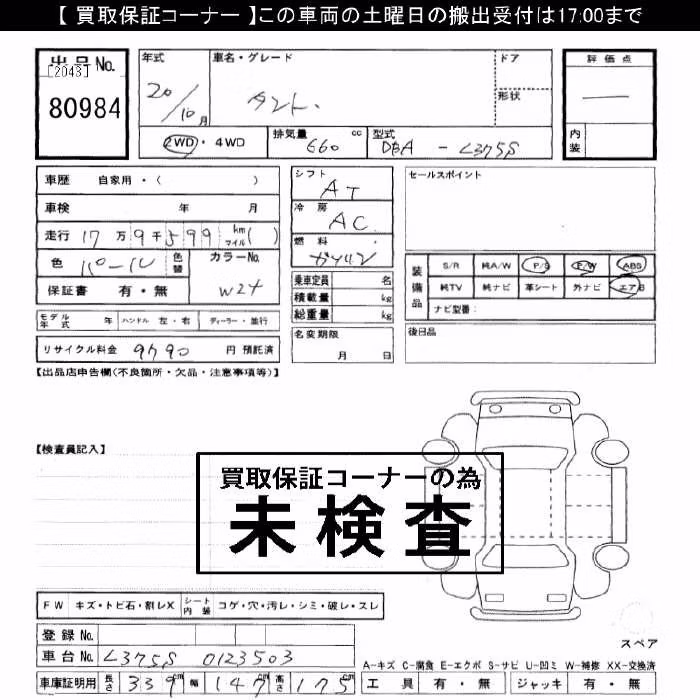 【 買取保証コーナー 】この車両の土曜日の搬出受付は17:00まで
出品No.
[2043]
80984
年式
20/10月
車名・グレード
タント
ドア
形状
評価点
内装
2WD・4WD
排気量 660 cc
型式 DBA - L375S
車歴 自家用・( )
車検 年 月
走行 17万9千599 km マイル( )
色 パール 色替
カラーNo. W24
保証書 有・無
シフト AT
冷房 AC
燃料 ガソリン
乗車定員 名
積載量 kg
総重量 kg
セールスポイント
装備品
S/R 純A/W P/S P/W ABS
純TV 純ナビ 革シート 外ナビ エアB
ナビ型番:
モデル年式 年 ハンドル 左・右 ディーラー・並行
リサイクル料金 9790 円 預託済
名変期限 月 日
後日品
【出品店申告欄(不良箇所・欠品・注意事項等)】
【検査員記入】
買取保証コーナーの為
未検査
FW キズ・トビ石・割レX シート内装 コゲ・穴・汚レ・シミ・破レ・スレ
登録No.
車台No. L375S 0123503
車庫証明用 長さ 339cm 幅 147cm 高さ 175cm
スペア
A-キズ C-腐食 E-エクボ S-サビ U-凹ミ W-補修 XX-交換済
工具 有・無 ジャッキ 有・無